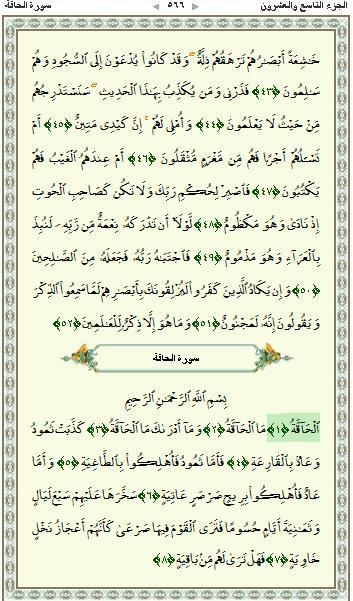 الجزء التاسع والعشرون ٥٦٦ سورة الحاقة
خَٰشِعَةً أَبْصَٰرُهُمْ تَرْهَقُهُمْ ذِلَّةٌ ۖ وَقَدْ كَانُوا۟ يُدْعَوْنَ إِلَى ٱلسُّجُودِ وَهُمْ
سَٰلِمُونَ ﴿٤٣﴾ فَذَرْنِى وَمَن يُكَذِّبُ بِهَٰذَا ٱلْحَدِيثِ ۖ سَنَسْتَدْرِجُهُم
مِّنْ حَيْثُ لَا يَعْلَمُونَ ﴿٤٤﴾ وَأُمْلِى لَهُمْ ۚ إِنَّ كَيْدِى مَتِينٌ ﴿٤٥﴾ أَمْ
تَسْـَٔلُهُمْ أَجْرًا فَهُم مِّن مَّغْرَمٍ مُّثْقَلُونَ ﴿٤٦﴾ أَمْ عِندَهُمُ ٱلْغَيْبُ فَهُمْ
يَكْتُبُونَ ﴿٤٧﴾ فَٱصْبِرْ لِحُكْمِ رَبِّكَ وَلَا تَكُن كَصَاحِبِ ٱلْحُوتِ
إِذْ نَادَىٰ وَهُوَ مَكْظُومٌ ﴿٤٨﴾ لَّوْلَآ أَن تَدَٰرَكَهُۥ نِعْمَةٌ مِّن رَّبِّهِۦ لَنُبِذَ
بِٱلْعَرَآءِ وَهُوَ مَذْمُومٌ ﴿٤٩﴾ فَٱجْتَبَٰهُ رَبُّهُۥ فَجَعَلَهُۥ مِنَ ٱلصَّٰلِحِينَ
﴿٥٠﴾ وَإِن يَكَادُ ٱلَّذِينَ كَفَرُوا۟ لَيُزْلِقُونَكَ بِأَبْصَٰرِهِمْ لَمَّا سَمِعُوا۟ ٱلذِّكْرَ
وَيَقُولُونَ إِنَّهُۥ لَمَجْنُونٌ ﴿٥١﴾ وَمَا هُوَ إِلَّا ذِكْرٌ لِّلْعَٰلَمِينَ ﴿٥٢﴾
سورة الحاقة
بِسْمِ ٱللَّهِ ٱلرَّحْمَٰنِ ٱلرَّحِيمِ
ٱلْحَآقَّةُ ﴿١﴾ مَا ٱلْحَآقَّةُ ﴿٢﴾ وَمَآ أَدْرَىٰكَ مَا ٱلْحَآقَّةُ ﴿٣﴾ كَذَّبَتْ ثَمُودُ
وَعَادٌۢ بِٱلْقَارِعَةِ ﴿٤﴾ فَأَمَّا ثَمُودُ فَأُهْلِكُوا۟ بِٱلطَّاغِيَةِ ﴿٥﴾ وَأَمَّا
عَادٌ فَأُهْلِكُوا۟ بِرِيحٍ صَرْصَرٍ عَاتِيَةٍ ﴿٦﴾ سَخَّرَهَا عَلَيْهِمْ سَبْعَ لَيَالٍ
وَثَمَٰنِيَةَ أَيَّامٍ حُسُومًا فَتَرَى ٱلْقَوْمَ فِيهَا صَرْعَىٰ كَأَنَّهُمْ أَعْجَازُ نَخْلٍ
خَاوِيَةٍ ﴿٧﴾ فَهَلْ تَرَىٰ لَهُم مِّنۢ بَاقِيَةٍ ﴿٨﴾